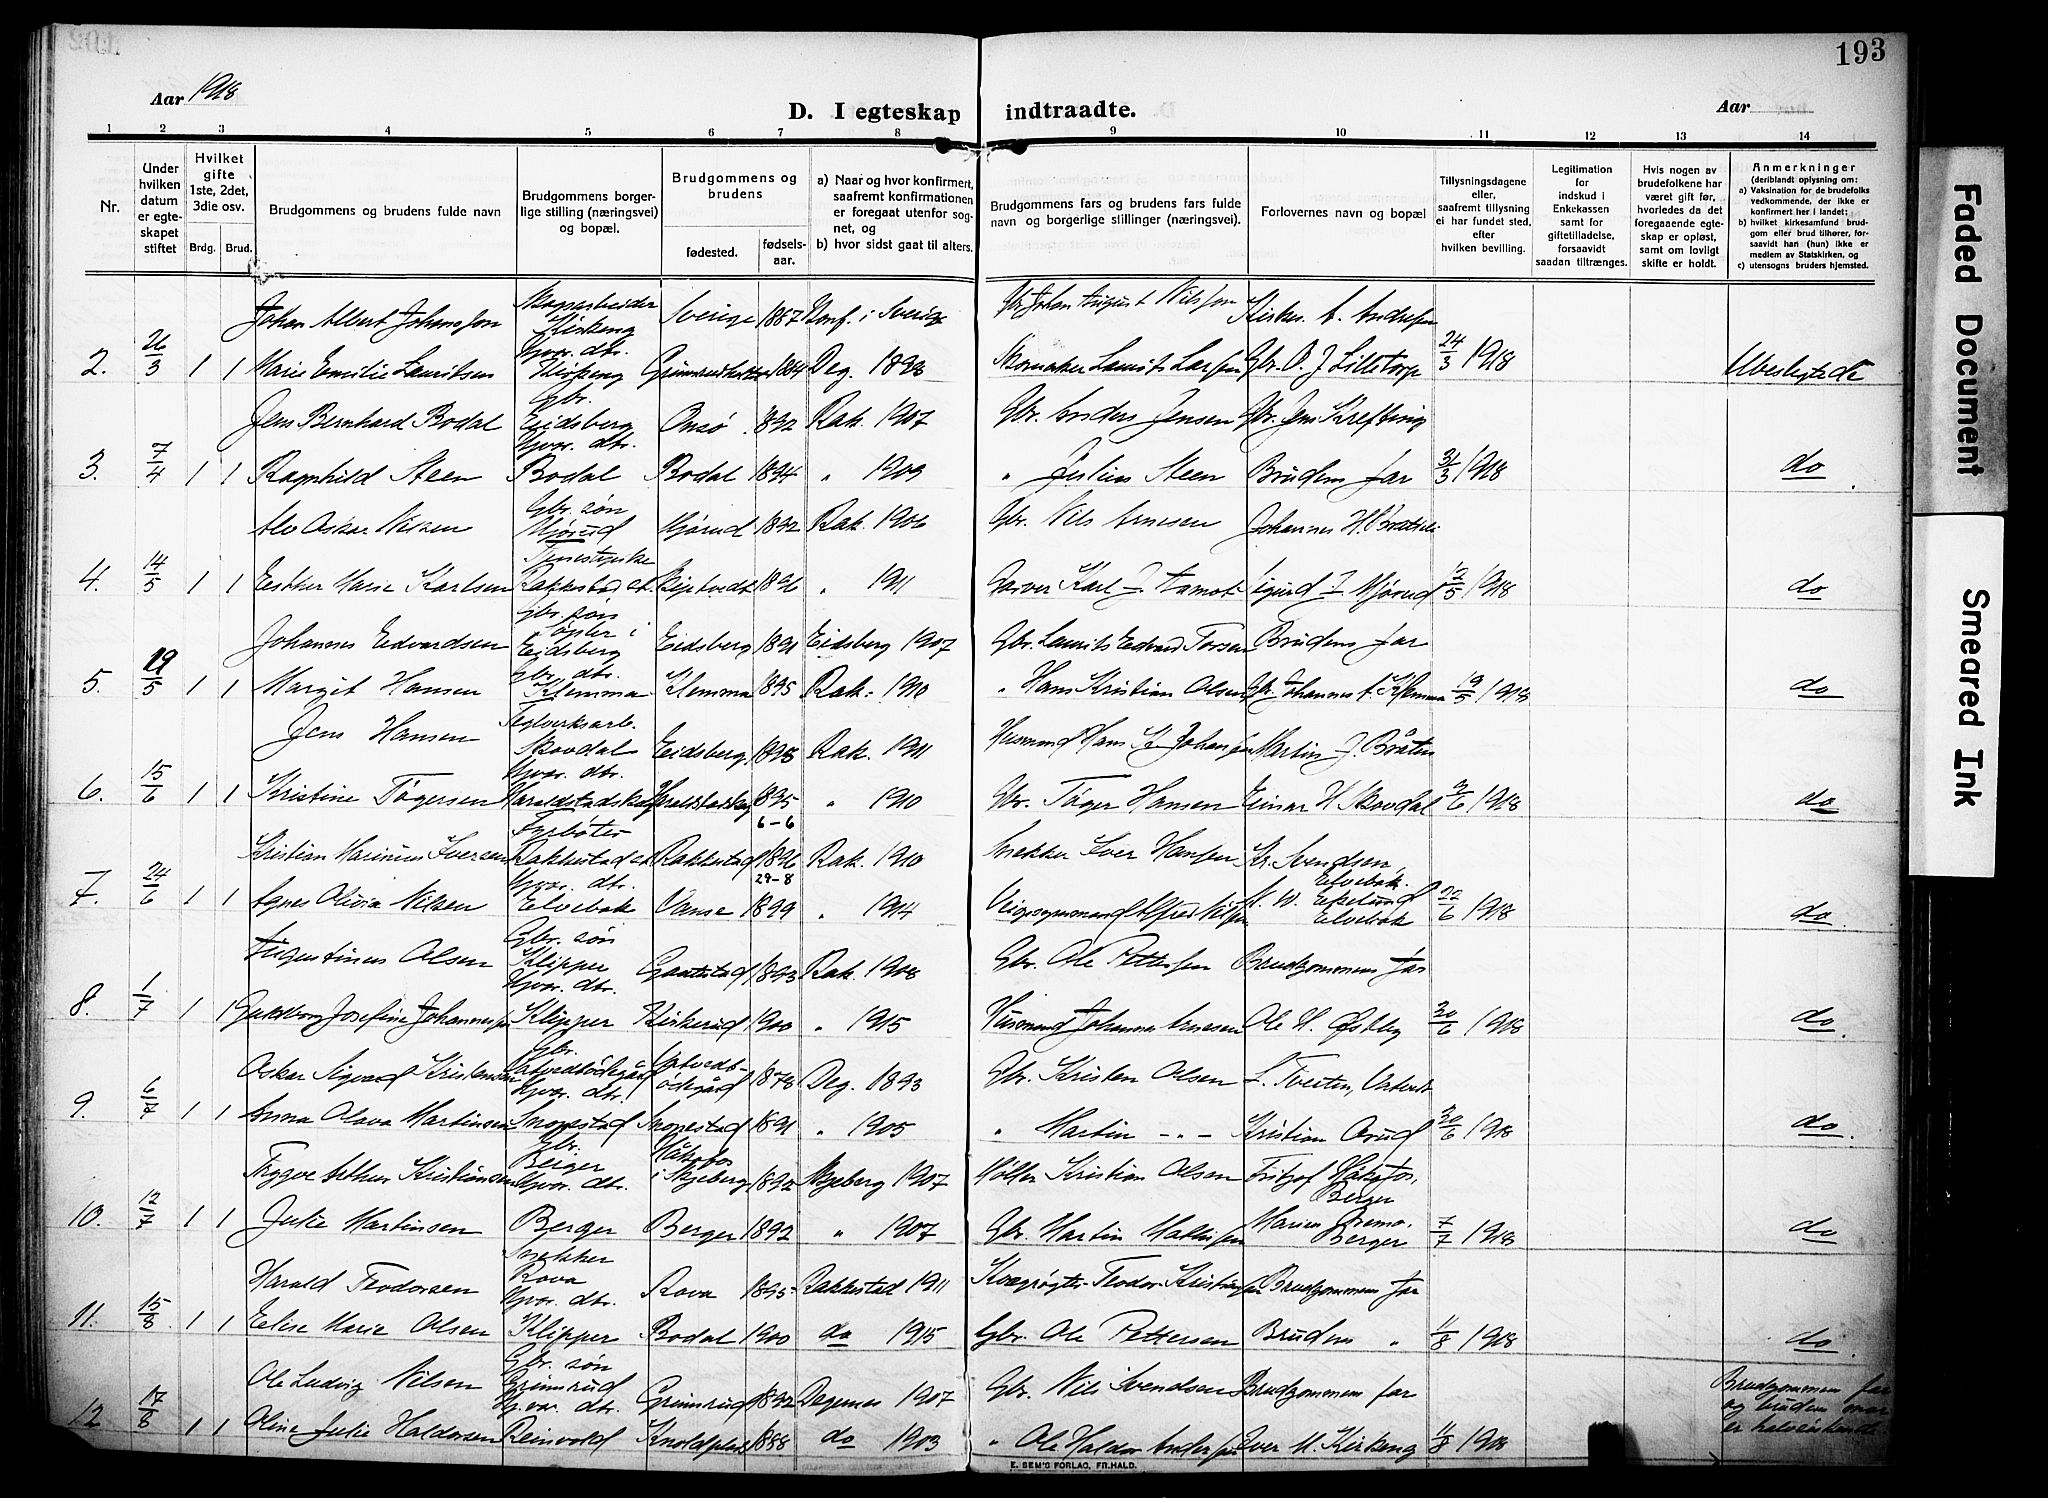 193
Aar 1918
D. I egteskap indtraadte.
Aar
1 2 3 4 5 6 7 8 9 10 11 12 13 14
Nr.
Under hvilken datum er egteskapet stiftet
Hvilket gifte 1ste, 2det, 3die osv.
Brdg. Brud.
Brudgommens og brudens fulde navn
Brudgommens borgerlige stilling (næringsvei) og bopæl.
Brudgommens og brudens
fødested.
fødselsaar.
a) Naar og hvor konfirmert, saafremt konfirmationen er foregaat utenfor sognet, og
b) hvor sidst gaat til alters.
Brudgommens fars og brudens fars fulde navn og borgerlige stillinger (næringsvei).
Forlovernes navn og bopæl
Tillysningsdagene eller, saafremt tillysning ei har fundet sted, efter hvilken bevilling.
Legitimation for indskud i Enkekassen samt for giftetilladelse, forsaavidt saadan tiltrænges.
Hvis nogen av brudefolkene har været gift før, hvorledes da det foregaaende egteskap er opløst, samt om lovligt skifte er holdt.
Anmerkninger (deriblandt oplysning om:
a) Vaksination for de brudefolks vedkommende, der ikke er konfirmert her i landet;
b) hvilket kirkesamfund brudgom eller brud tilhører, forsaavidt han (hun) ikke er medlem av Statskirken, og
c) utensogns bruders hjemsted.
Johan Albert Johansson Kirkeng Sverige 1887 Konf. i Sverige Gbr. Johan August Nilsson Kirkes. A. Andresen
2. 26/3 1 1 Marie Emilie Lauritsen Gvar. dtr. Kirkeng 1884 Deg. 1898 Skomaker Laurits Larsen Gbr. O. J. Lilletorp 24/3 1918 Ubeslegtede
Jens Bernhard Bodal Gbr. Eidsberg Onsø 1892 Rak. 1907 Gbr. Anders Jensen Gbr. Jens Krefting
3. 7/4 1 1 Ragnhild Steen Gvar. dtr. Bodal Bodal 1894 " 1909 " Julius Steen Brudens far 31/3 1918 do
Alv Oskar Nilsen Gbr. søn Mjørud Mjørud 1892 Rak. 1906 Gbr. Nils Arnesen Johannes H.
4. 14/5 1 1 Esther Marie Karlsen Rakkestad st. 1896 " 1911 Garver Karl J. Sigurd J. Mjørud 12/5 1918 do
Johannes Edvardsen Gbr. søn Eidsberg Eidsberg 1891 Eidsberg 1907 Gbr. Laurits Edvard Torsen Brudens far
5. 19/5 1 1 Margit Hansen Gbr. dtr. Klemma Klemma 1895 Rak. 1910 " Hans Kristian Olsen Gbr. Johannes A. Klemma 19/5 1918 do
Jens Hansen Teglverksarb. Skovdal Eidsberg 1898 Rak. 1911 Husmand Hans K. Johansen Martin J. Bråten
6. 15/6 1 1 Kristine Tøgersen Gvar. dtr. Haraldstadskog Haraldstadskog 1895 " 1910 Gbr. Tøger Hansen Einar H. Skovdal 9/6 1918 do
6-6
Kristian Marinius Iversen Fyrbøter Rakkestad st. Rakkestad 1896 Rak. 1910 Snekker Iver Hansen Kr. Svendsen, Elvebak.
29-8
7. 24/6 1 1 Agnes Olivia Nilsen Gvar. dtr. Elvebak Vanse 1899 " 1914 Veiopsynsmand Alfred Nilsen A. W. Ekelund Elvebak 22/6 1918 do
Augustinus Olsen Gbr. søn Klipper Gautestad 1893 Rak. 1908 Gbr. Ole Pettersen Brudgommens far
8. 1/7 1 1 Guldborg Josefine Johannesen Gvar. dtr. Klipper Kirkerud 1900 " 1915 Husmand Johannes Arnesen Ole H. Østby 30/6 1918 do
Oskar Sigvard Kristensen Gbr. 1878 Deg. 1893 Gbr. Kristen Olsen L. Tveiten,
9. 6/7 1 1 Anna Olava Martinsen Gvar. dtr. 1891 " 1905 " Martin - " - Kristian Orud 30/6 1918 do
Trygve Arthur Kristiansen Gbr. Berger Håkafos i Skjeberg 1892 Skjeberg 1907 Møller Kristian Olsen Fritjof Håkafos, Berger
10. 12/7 1 1 Julie Martinsen Gvar. dtr. Berger Berger 1892 " 1907 Gbr. Martin Mathisen Marius Bremo, Berger 7/7 1918 do
Harald Teodorsen Snekker Rova Rova 1895 Rakkestad 1911 Kvægrøgter Teodor Kristiansen Brudgommens far
11. 15/8 1 1 Elise Marie Olsen Gvar. dtr. Klipper Bodal 1900 do 1915 Gbr. Ole Pettersen Brudens " 11/8 1918 do
Ole Ludvig Nilsen Gbr. søn Grimsrud Grimsrud 1892 Degernes 1907 Gbr. Nils Svendsen Brudgommens far Brudgommens far og brudens mor er halvsøskende
12 17/8 1 1 Oline Julie Haldorsen Gvar. dtr. Reinvold 1888 do 1903 " Ole Haldor Andersen Iver M. Kirkeng 11/8 1918
E. SEM'S FORLAG, FR.HALD.
Faded Document
Smeared Ink